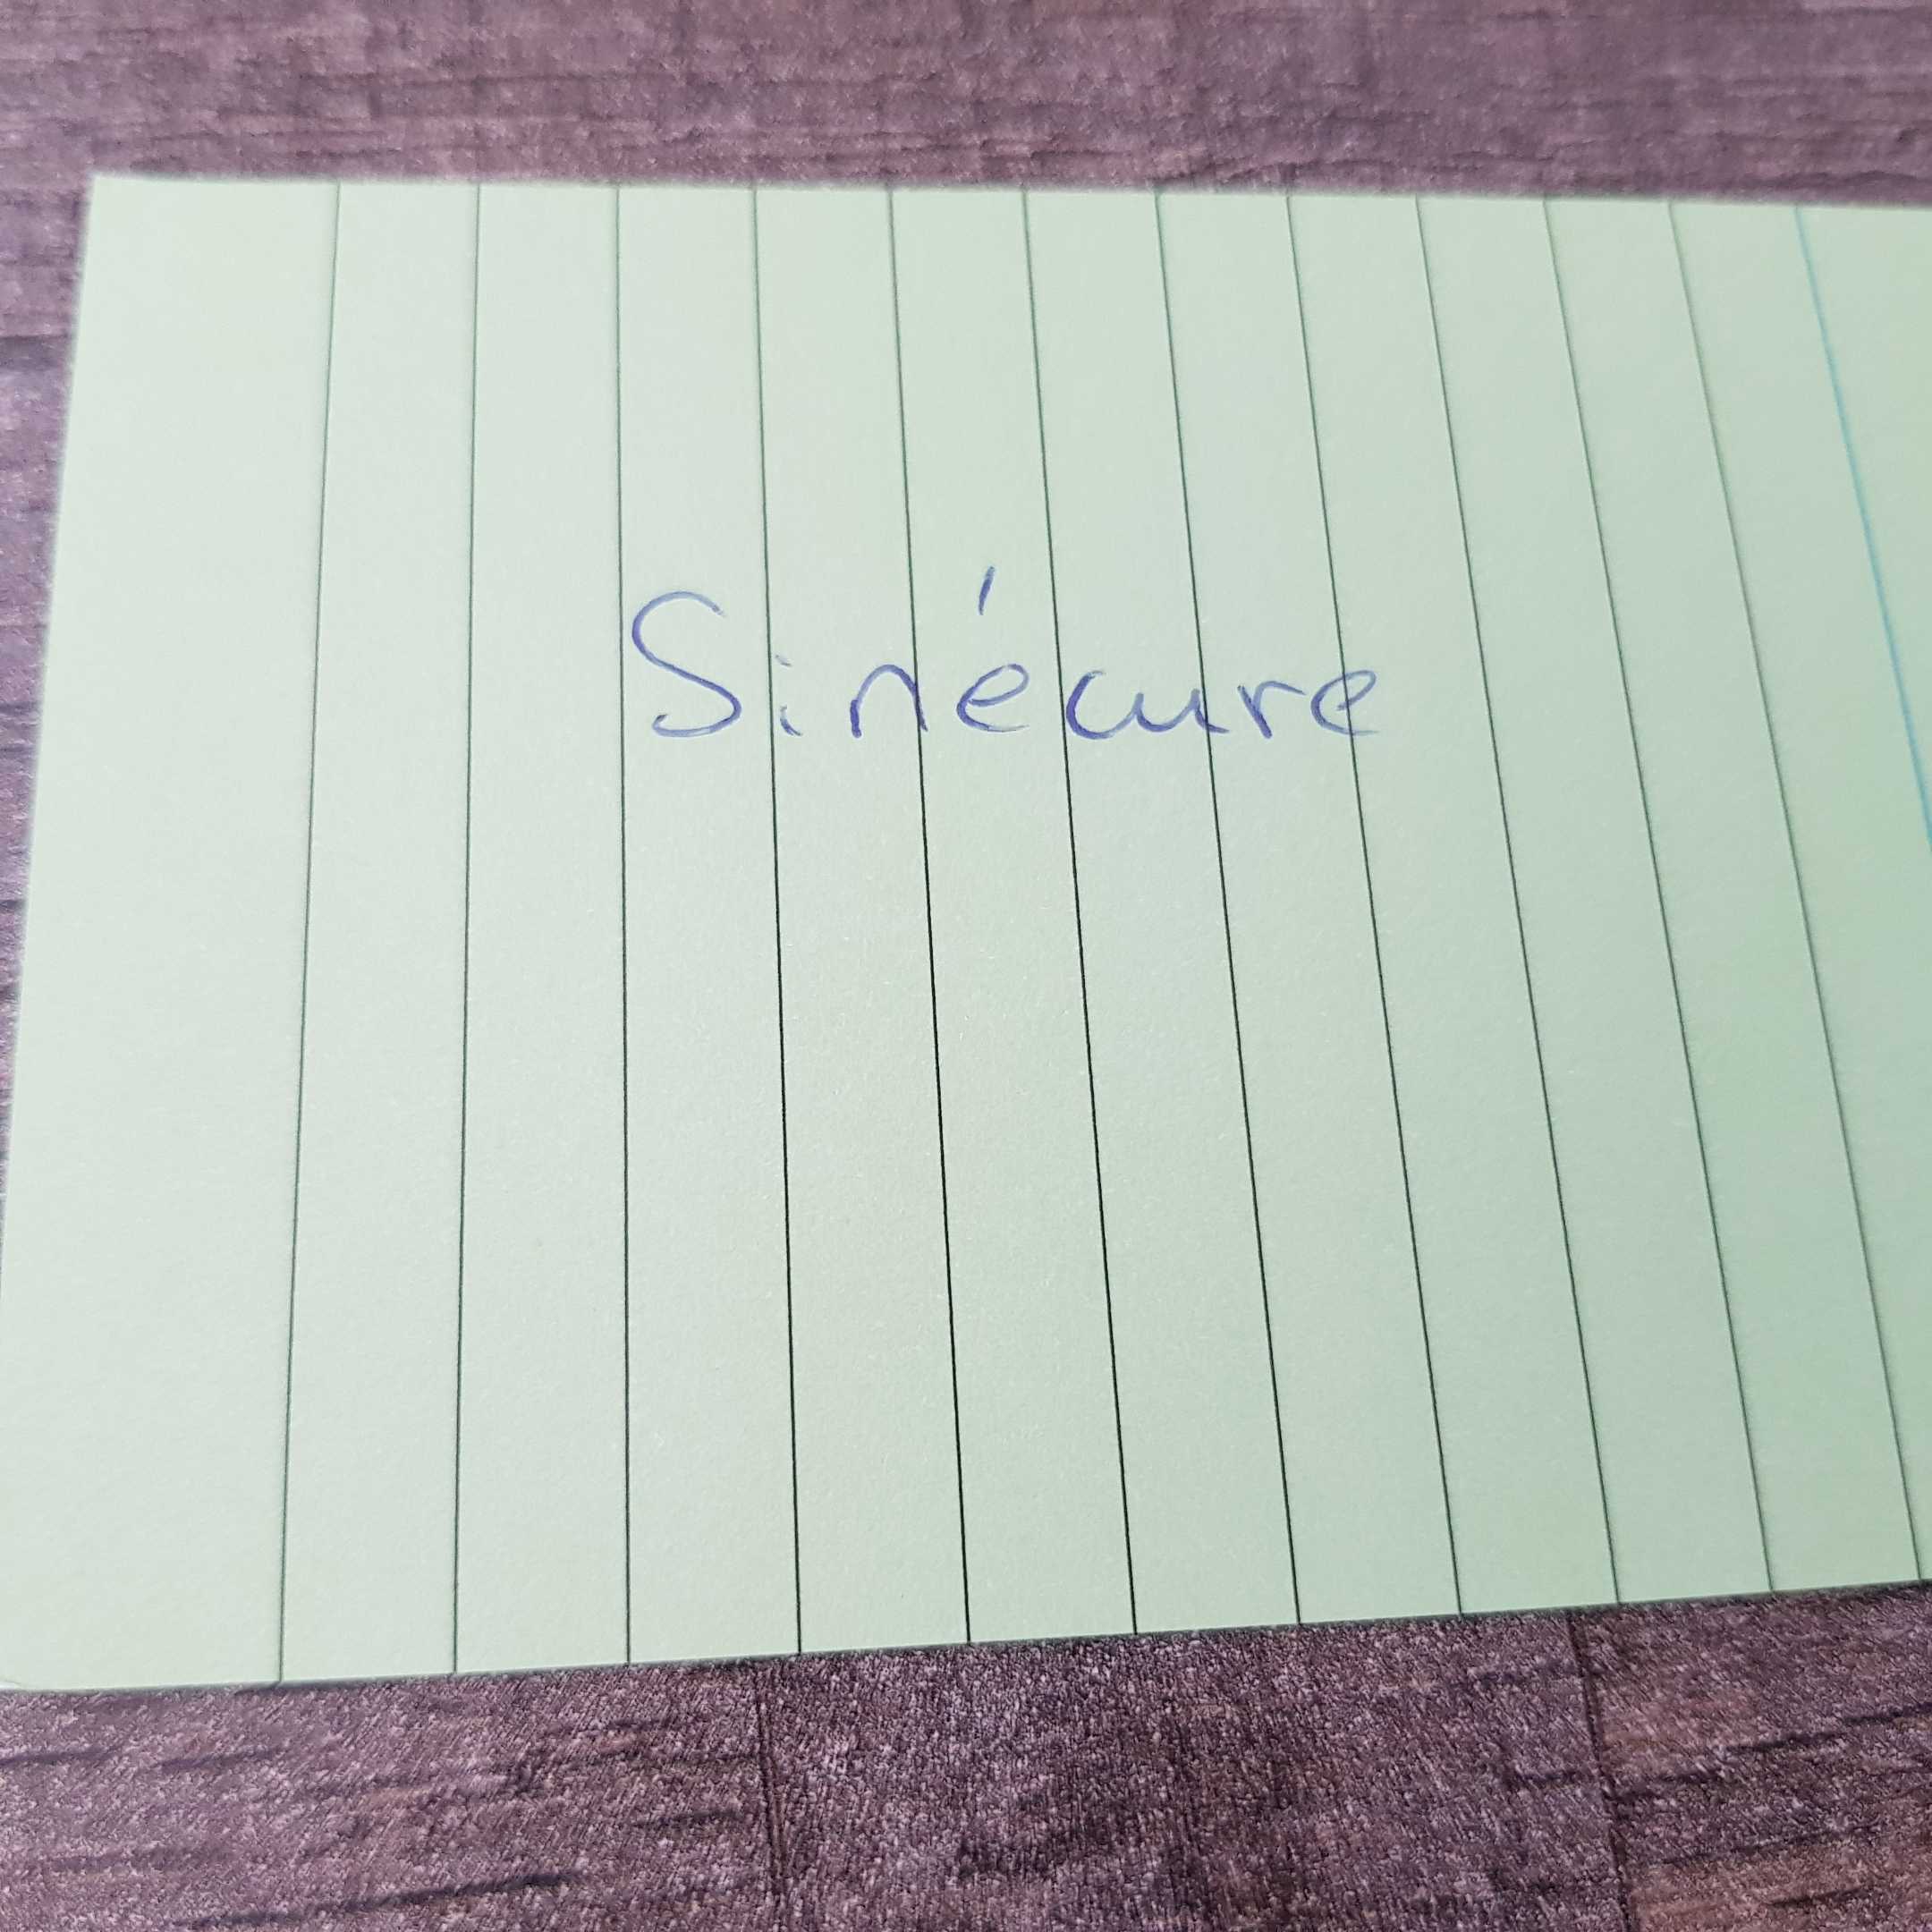 Sinécure